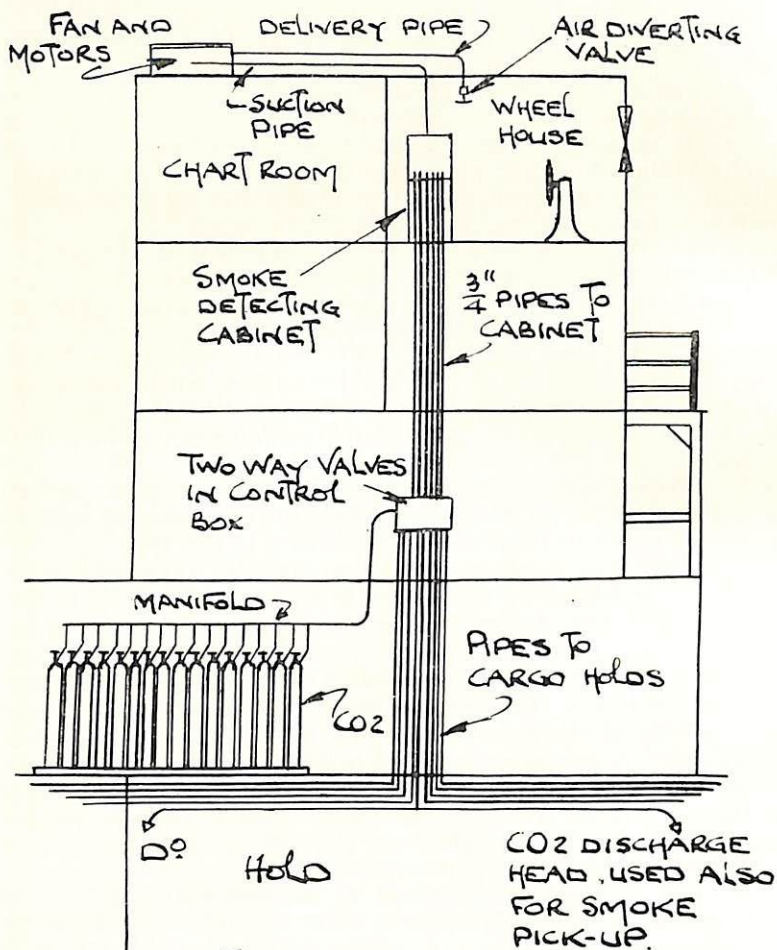 FAN AND
MOTORS
DELIVERY PIPE
AIR DIVERTING
VALVE
SUCTION
PIPE
WHEEL
HOUSE
CHART ROOM
SMOKE
DETECTING
CABINET
3/4" PIPES TO
CABINET
TWO WAY VALVES
IN CONTROL
BOX
MANIFOLD
PIPES TO
CARGO HOLDS
CO2
Dº
HOLD
CO2 DISCHARGE
HEAD. USED ALSO
FOR SMOKE
PICK-UP.